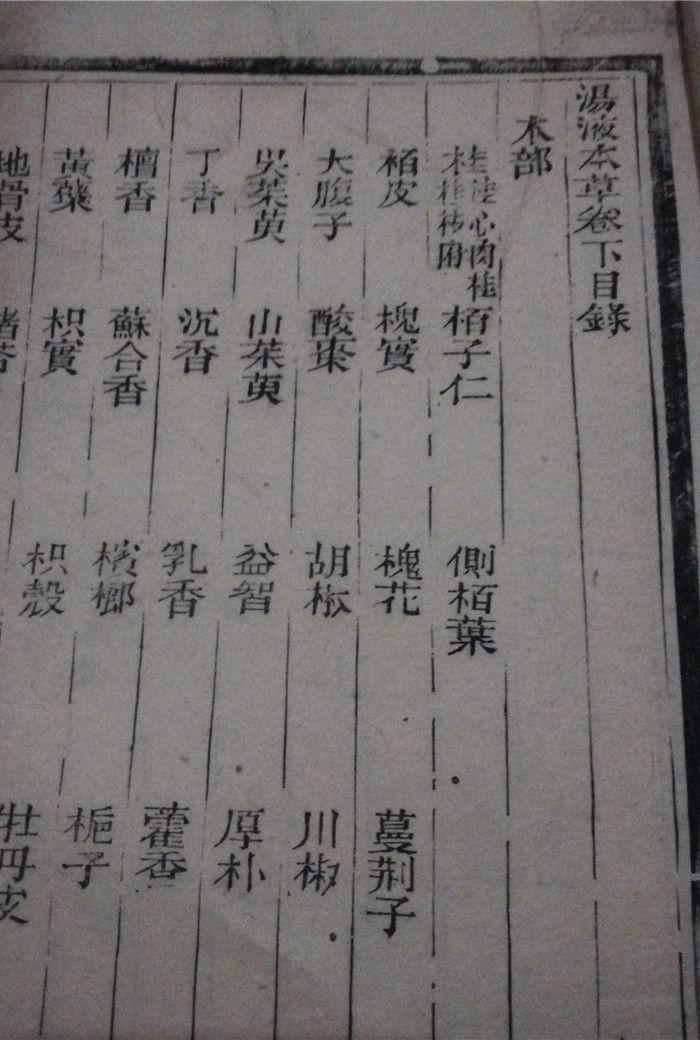 湯液本草卷下目錄
木部
桂 桂心肉桂桂枝附 栢子仁 側栢葉
栢皮 槐實 槐花 蔓荆子
大腹子 酸棗 胡椒 川椒
吳茱萸 山茱萸 益智 厚朴
丁香 沉香 乳香 藿香
檀香 蘇合香 檳榔 梔子
黃蘗 枳實 枳殼 牡丹皮
地骨皮 猪苓